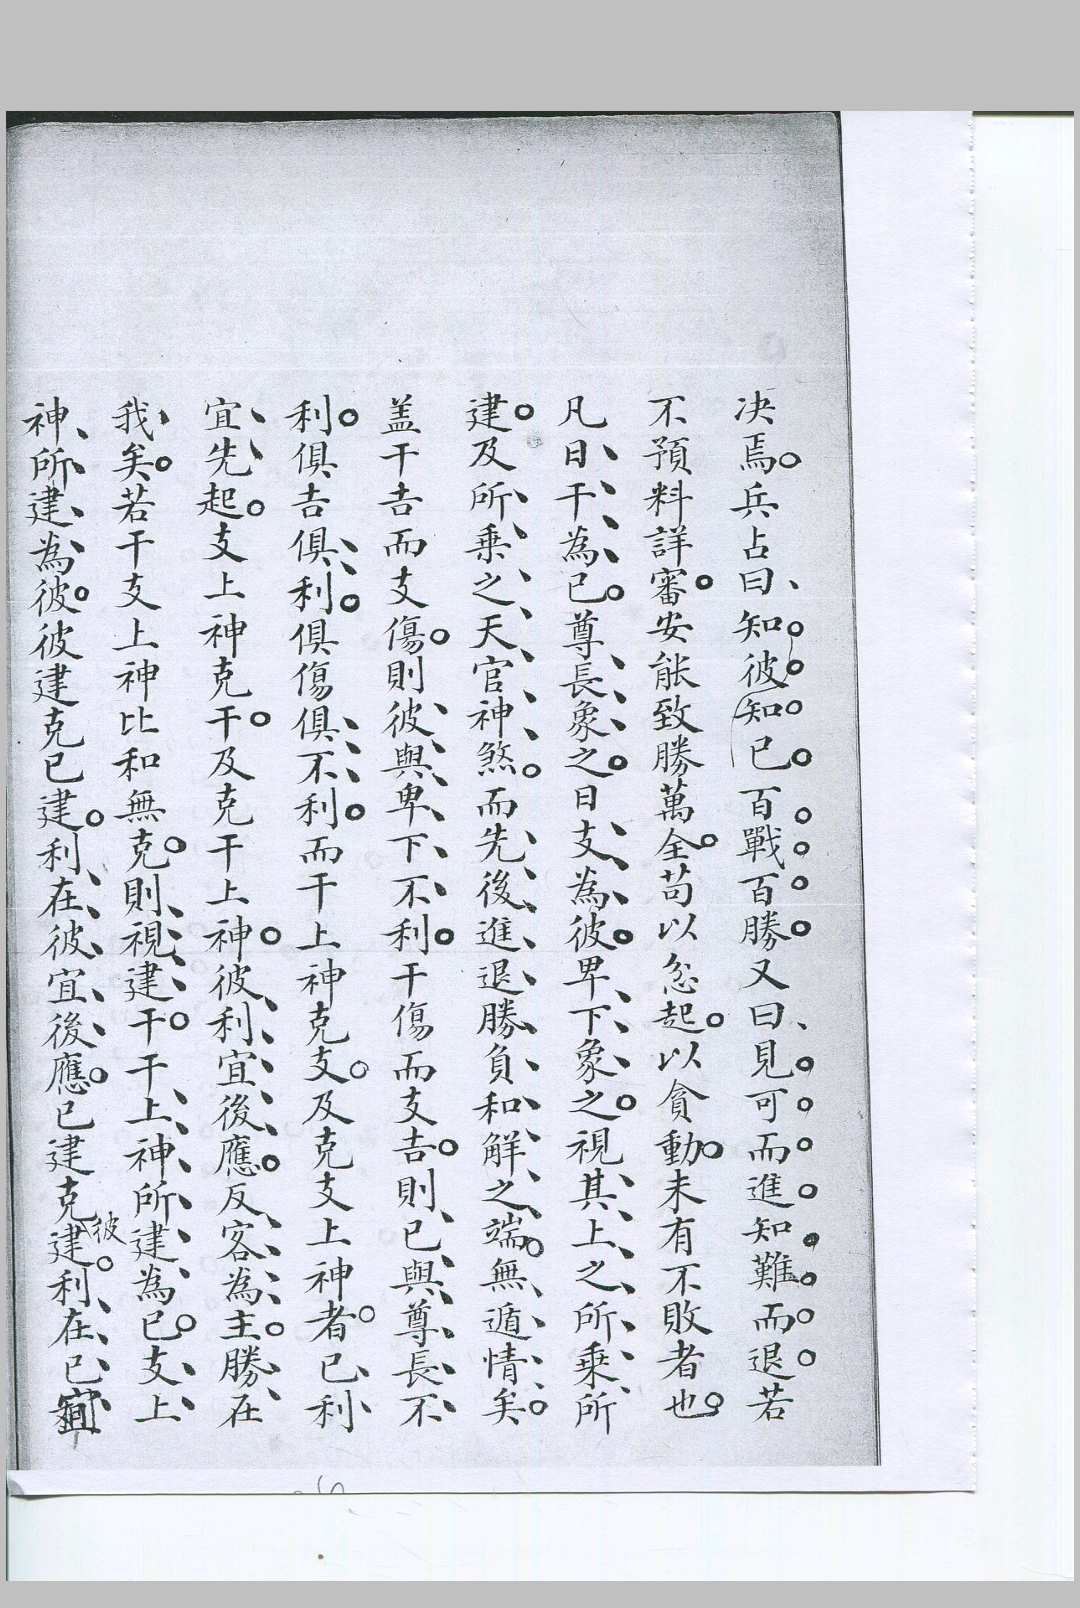 决焉兵占曰知彼知已百戰百勝又曰見可而進知難而退若
不預料詳審安能致勝萬全苟以忿起以貪動未有不敗者也
凡日干為已尊長象之日支為彼卑下象之視其上之所乗所
建及所乗之天官神煞而先後進退勝負和解之端無遁情矣
盖干吉而支傷則彼與卑下不利干傷而支吉則已與尊長不
利俱吉俱利俱傷俱不利而干上神克支及克支上神者已利
宜先起支上神克干及克干上神彼利宜後應反客為主勝在
我矣若干支上神比和無克則視建干干上神所建為已支上
神所建為彼彼建克已建利在彼宜後應已建克彼建利在已宜